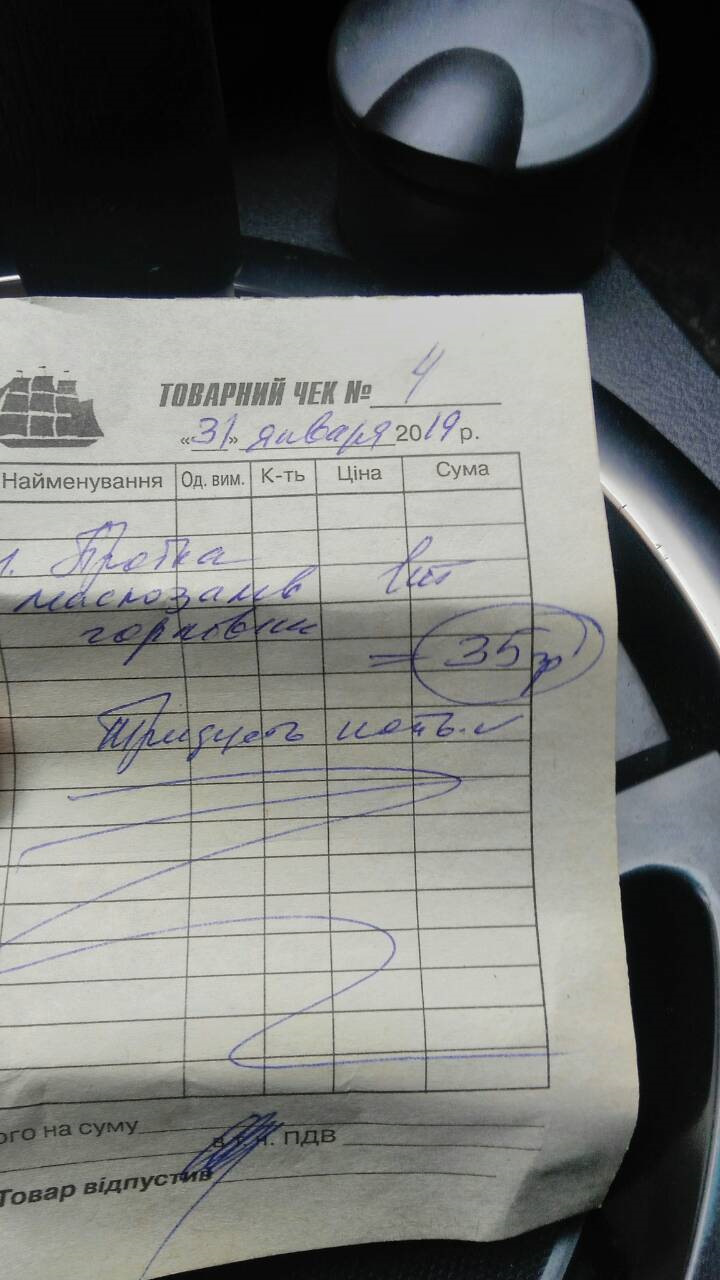 ТОВАРНИЙ ЧЕК № 4
«31» января 2019 р.
Найменування Од. вим. К-ть Ціна Сума
1. Пробка 1шт
маслозалив
горловин
= 35 гр
Тридцать пять
ого на суму
в т. ч. ПДВ
Товар відпустив